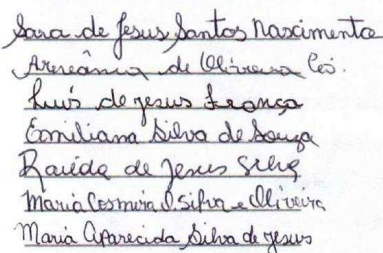 Sara de Jesus Santos Nascimento
de Oliveira
Luis de jesus França
Emiliana Silva de Souza
de Jesus Silva
Maria Cosmira O. Silva e Oliveira
Maria Aparecida Silva de jesus